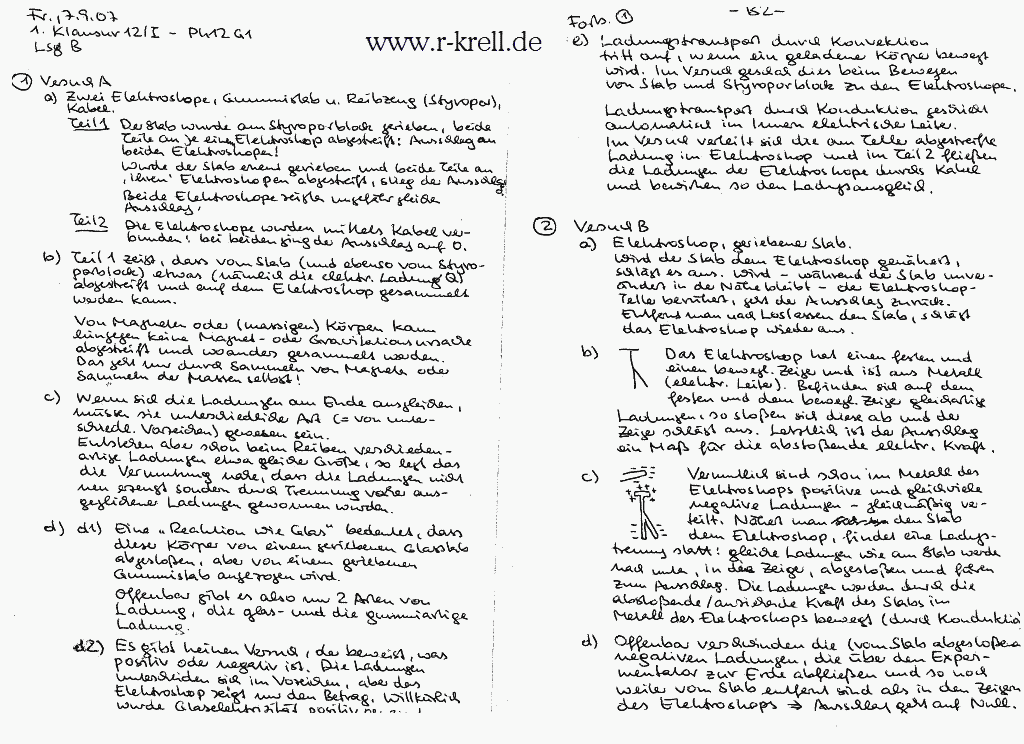 Fr., 7.9.07
1. Klausur 12/I - Ph12G1
Lsg B
www.r-krell.de
① Versuch A
a) Zwei Elektroskope, Gummistab u. Reibzeug (Styropor),
Kabel.
Teil 1 Der Stab wurde am Styroporblock gerieben, beide
Teile an je einem Elektroskop abgestreift: Ausschlag an
beiden Elektroskopen!
Wurde der Stab erneut gerieben und beide Teile an
„ihren" Elektroskopen abgestreift, stieg der Ausschlag
Beide Elektroskope zeigten ungefähr gleichen
Ausschlag.
Teil 2 Die Elektroskope wurden mittels Kabel ver-
bunden: bei beiden ging der Ausschlag auf 0.
b) Teil 1 zeigt, dass vom Stab (und ebenso vom Styro-
porblock) etwas (nämlich die elektr. Ladung Q)
abgestreift und auf dem Elektroskop gesammelt
werden kann.
Von Magneten oder (massigen) Körpern kann
hingegen keine Magnet- oder Gravitationsursache
abgestreift und woanders gesammelt werden.
Das geht nur durch Sammeln von Magneten oder
Sammeln der Massen selbst!
c) Wenn sich die Ladungen am Ende ausgleichen,
müssen sie unterschiedliche Art (= von unter-
schiedl. Vorzeichen) gewesen sein.
Entstehen aber schon beim Reiben verschieden-
artige Ladungen etwa gleicher Größe, so legt das
die Vermutung nahe, dass die Ladungen nicht
neu erzeugt sondern durch Trennung vorher aus-
geglichener Ladungen gewonnen wurden.
d) d1) Eine „Reaktion wie Glas" bedeutet, dass
dieser Körper von einem geriebenen Glasstab
abgestoßen, aber von einem geriebenen
Gummistab angezogen wird.
Offenbar gibt es also nur 2 Arten von
Ladung, die glas- und die gummiartige
Ladung.
d2) Es gibt keinen Versuch, der beweist, was
positiv oder negativ ist. Die Ladungen
unterscheiden sich im Vorzeichen, aber das
Elektroskop zeigt nur den Betrag. Willkürlich
wurde Glaselektrizität positiv genannt
- B2 -
Forts. ①
e) Ladungstransport durch Konvektion
tritt auf, wenn ein geladener Körper bewegt
wird. Im Versuch geschah dies beim Bewegen
von Stab und Styroporblock zu den Elektroskopen.
Ladungstransport durch Konduktion geschieht
automatisch im Innern elektrischer Leiter.
Im Versuch verteilt sich die am Teller abgestreifte
Ladung im Elektroskop und im Teil 2 fließen
die Ladungen der Elektroskope durchs Kabel
und bewirken so den Ladungsausgleich.
② Versuch B
a) Elektroskop, geriebener Stab.
Wird der Stab dem Elektroskop genähert,
schlägt es aus. Wird - während der Stab unver-
ändert in der Nähe bleibt - der Elektroskop-
Teller berührt, geht der Ausschlag zurück.
Entfernt man nach Loslassen den Stab, schlägt
das Elektroskop wieder aus.
b) Das Elektroskop hat einen festen und
einen bewegl. Zeiger und ist aus Metall
(elektr. Leiter). Befinden sich auf dem
festen und dem bewegl. Zeiger gleichartige
Ladungen, so stoßen sich diese ab und der
Zeiger schlägt aus. Letztlich ist der Ausschlag
ein Maß für die abstoßende elektr. Kraft.
c) Vermutlich sind schon im Metall des
Elektroskops positive und gleichviele
negative Ladungen - gleichmäßig ver-
teilt. Nähert man den Stab
dem Elektroskop, findet eine Ladungs-
trennung statt: gleiche Ladungen wie am Stab werden
nach unten, in den Zeiger, abgestoßen und führen
zum Ausschlag. Die Ladungen werden durch die
abstoßende/anziehende Kraft des Stabs im
Metall des Elektroskops bewegt (durch Konduktion
d) Offenbar verschwinden die (vom Stab abgestoßenen
negativen Ladungen, die über den Exper-
mentator zur Erde abfließen und so noch
weiter vom Stab entfernt sind als in den Zeigern
des Elektroskops ⇒ Ausschlag geht auf Null.